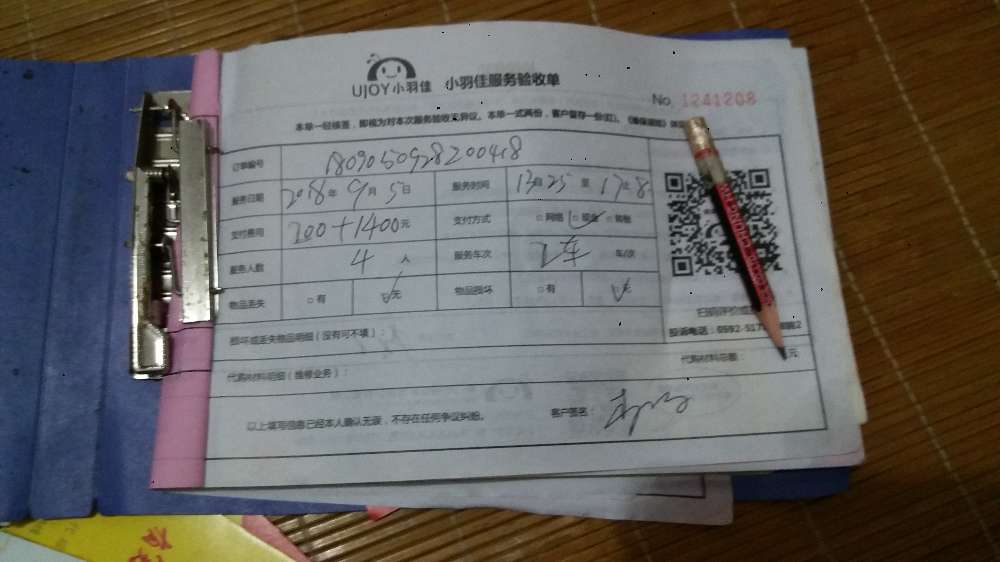 UJOY小羽佳 小羽佳服务验收单
No 1241208
本单一经核签，即视为对本次服务验收无异议。本单一式两份，客户留存一份
订单编号 180905092820048
服务日期 2018年9月5日 服务时间 13时25至17
支付费用 200+1400元 支付方式 □网络 现金 □
服务人数 4人 服务车次 2车 车/次
物品丢失 □有 ☑无 物品损坏 □有 ☑无
扫码评价
损坏或丢失物品明细（没有可不填）：
投诉电话：0592-517
代购材料明细（维修业务）：
代购材料总额： 元
以上填写信息已经本人确认无误，不存在任何争议纠纷。 客户签名：